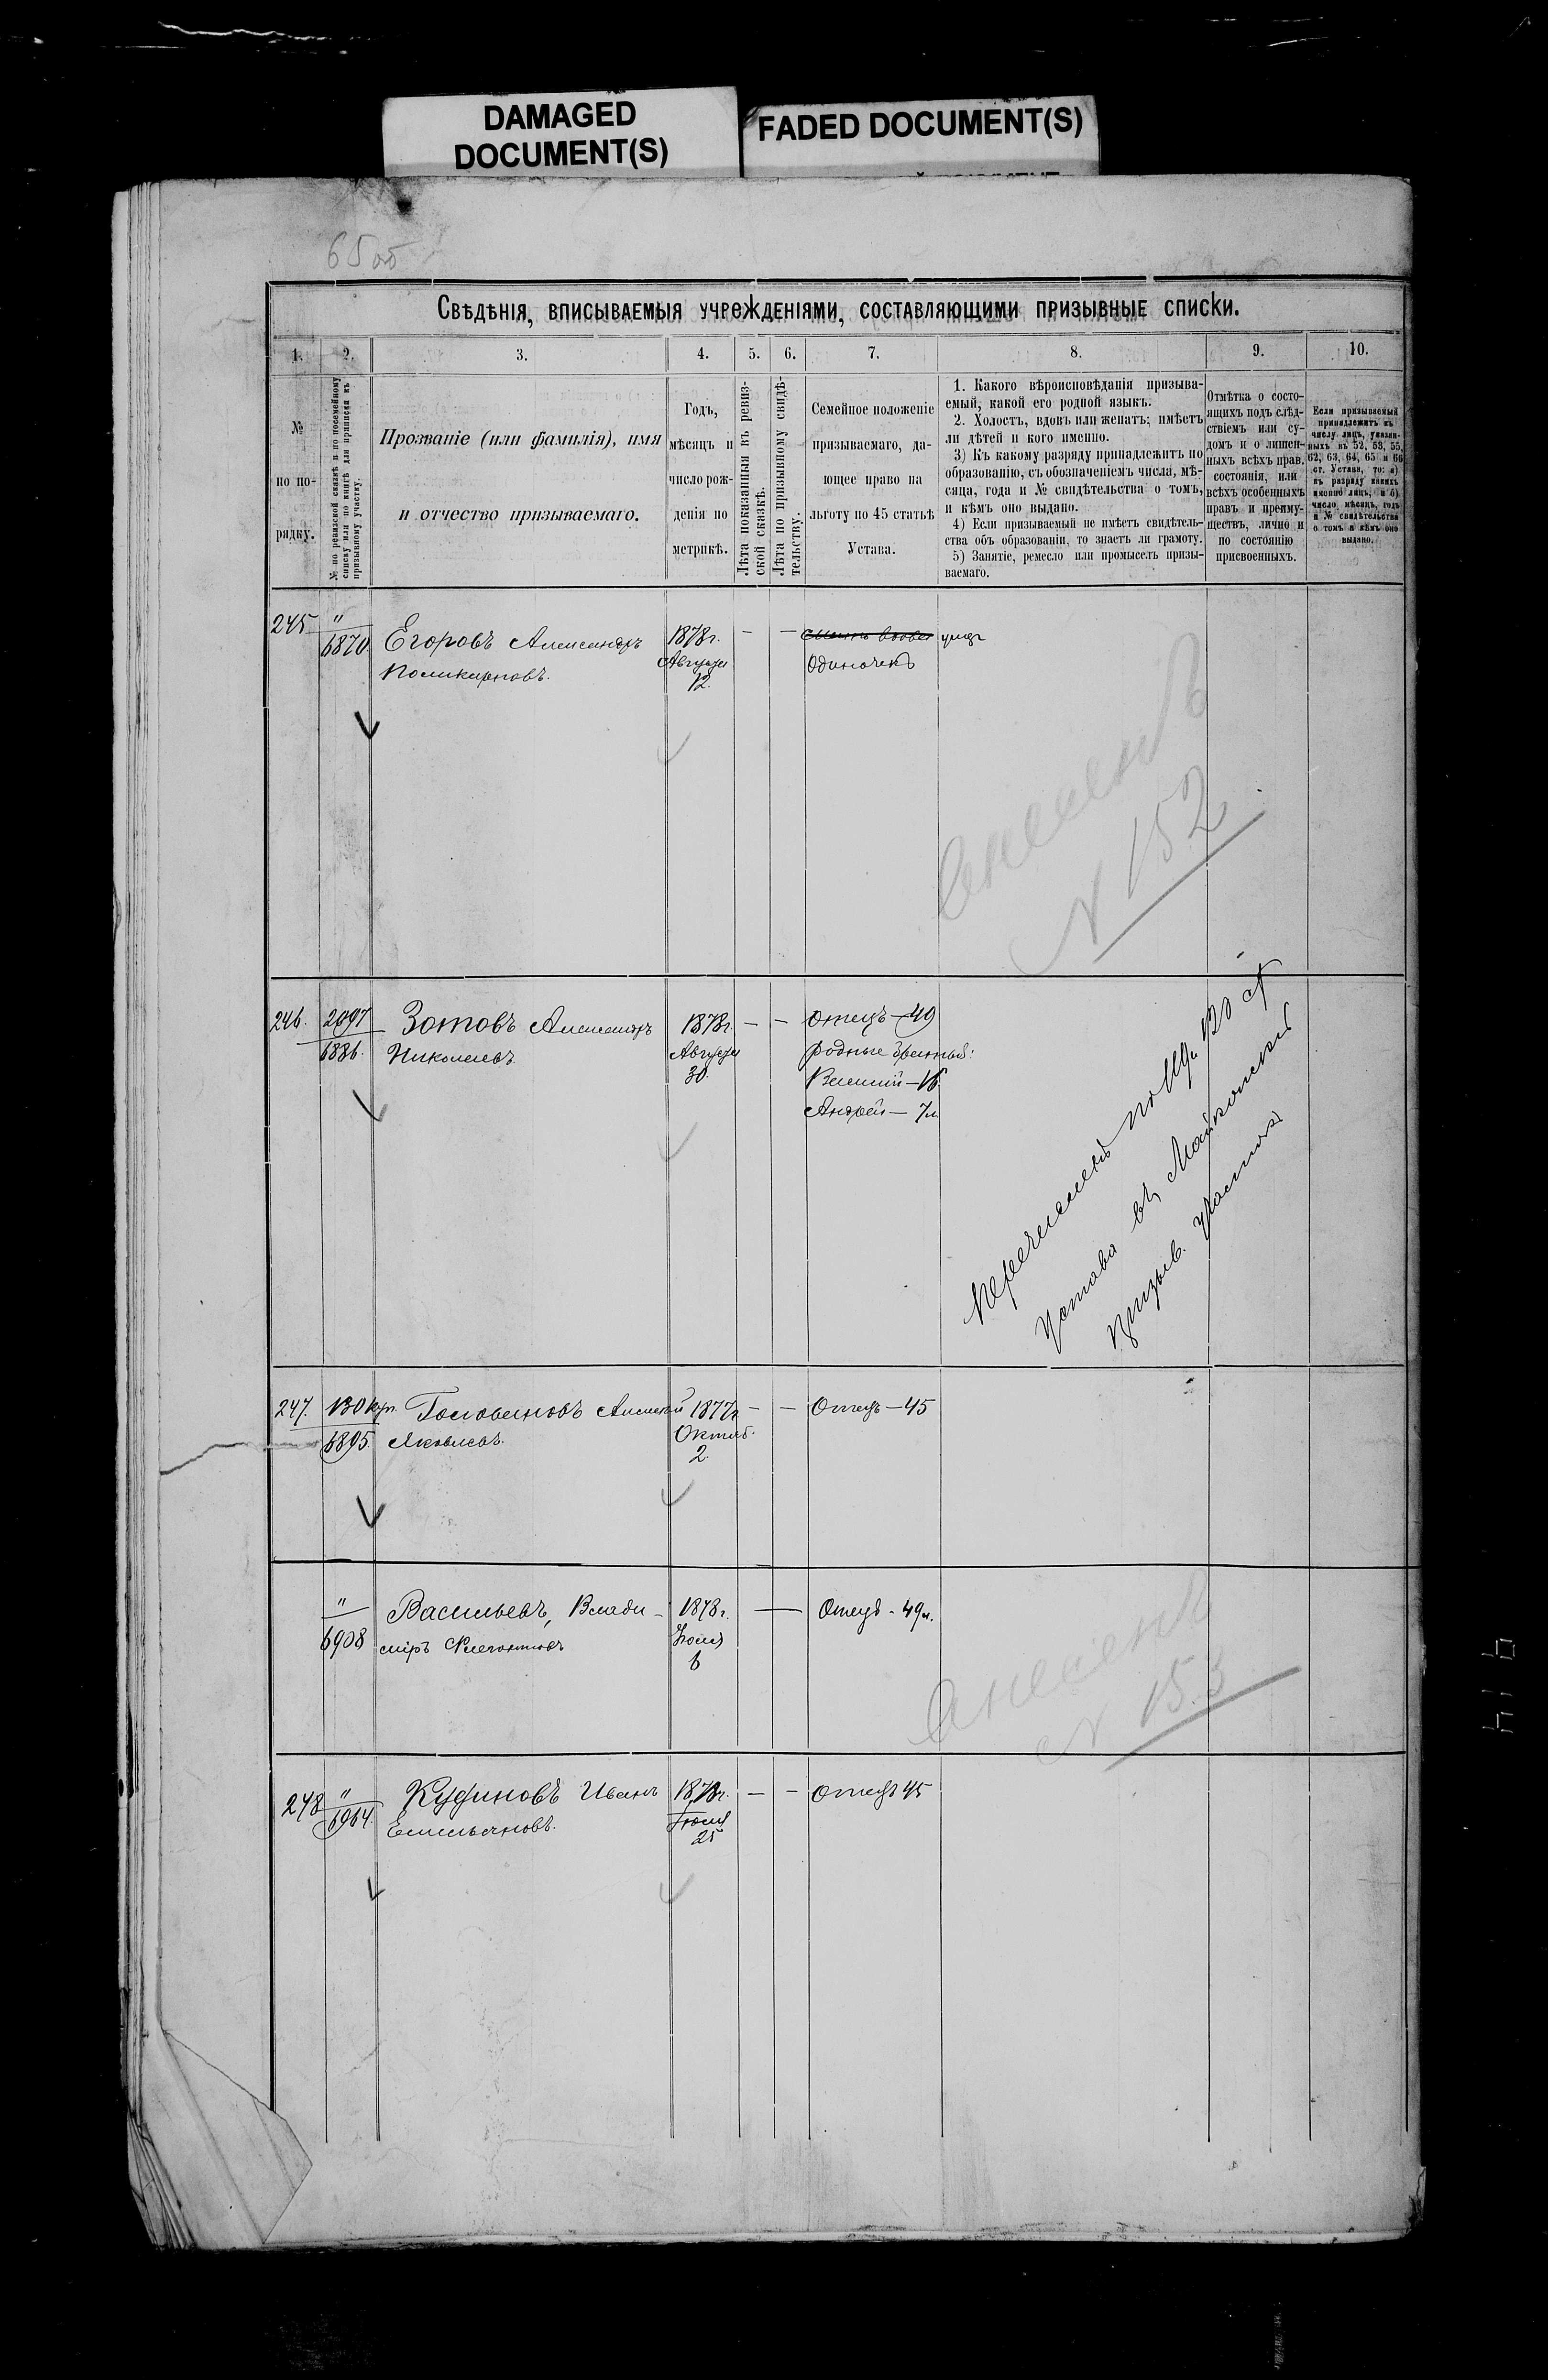 DAMAGED
DOCUMENT(S)
FADED DOCUMENT(S)
65 об
Свѣдѣнія, вписываемыя учрежденіями, составляющими призывные списки.
1. 2. 3. 4. 5. 6. 7. 8. 9. 10.
№
по по-
рядку.
№ по ревизской сказкѣ и по посемейному
списку или по книгѣ для приписки къ
призывному участку.
Прозваніе (или фамилія), имя
и отчество призываемаго.
Годъ,
мѣсяцъ и
число рож-
денія по
метрикѣ.
Лѣта показанныя въ ревиз-
ской сказкѣ.
Лѣта по призывному свидѣ-
тельству.
Семейное положеніе
призываемаго, да-
ющее право на
льготу по 45 статьѣ
Устава.
1. Какого вѣроисповѣданія призыва-
емый, какой его родной языкъ.
2. Холостъ, вдовъ или женатъ; имѣетъ
ли дѣтей и кого именно.
3) Къ какому разряду принадлежитъ по
образованію, съ обозначеніемъ числа, мѣ-
сяца, года и № свидѣтельства о томъ,
и кѣмъ оно выдано.
4) Если призываемый не имѣетъ свидѣтель-
ства объ образованіи, то знаетъ ли грамоту.
5) Занятіе, ремесло или промыселъ призы-
ваемаго.
Отмѣтка о состо-
ящихъ подъ слѣд-
ствіемъ или су-
домъ и о лишен-
ныхъ всѣхъ прав.
состоянія, или
всѣхъ особенныхъ
правъ и преиму-
ществъ, лично и
по состоянію
присвоенныхъ.
Если призываемый
принадлежитъ къ
числу лицъ, указан-
ныхъ въ 52, 53, 55,
62, 63, 64, 65 и 66
ст. Устава, то: а)
къ разряду какихъ
именно лицъ, и б)
число, мѣсяцъ, годъ
и № свидѣтельства
о томъ и кѣмъ оно
выдано.
245 " Егоровъ Александръ 1878 г. — —
6870 Поликарповъ. Августа Одиночекъ
12.
Исключенъ
№ 152
246. 2097 Зотовъ Александръ 1878 г. — — Отецъ — 49
6886. Николаевъ. Августа родные братья:
30. Василій — 16
Андрей — 7 л.
Перечисленъ по 120 ст
Устава въ Майкопскій
призыв. участокъ
247. 130 куп. Головановъ Алексѣй 1877 г. — — Отецъ — 45
6895. Яковлевъ. Октяб.
2.
" Васильевъ, Влади- 1878 г. — Отецъ - 49 л.
6908 міръ Флегонтовъ Іюля
6
Исключенъ
№ 153
248 " Кудиновъ Иванъ 1878 г. — — Отецъ 45
6964. Емельяновъ. Іюля
25